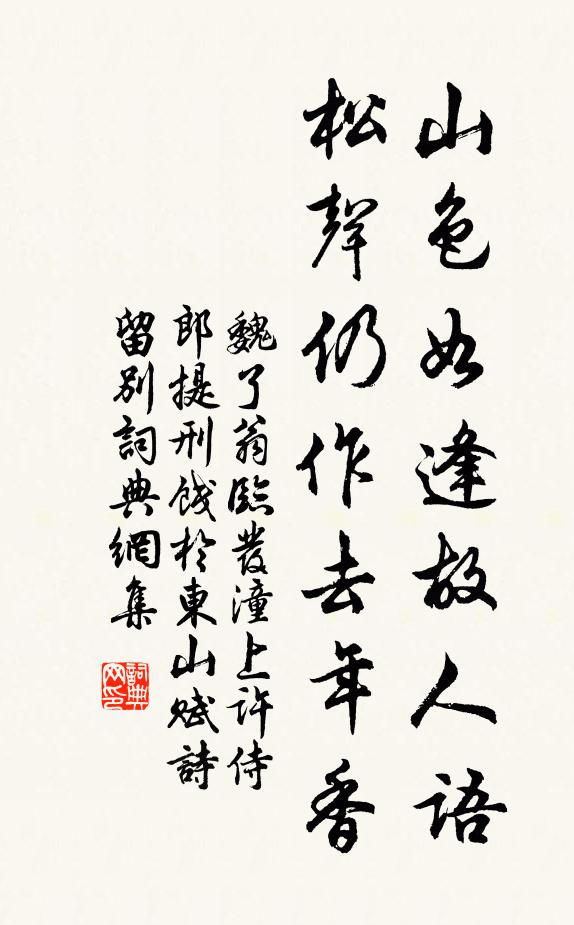 山色如逢故人語
松聲仍作去年香
魏了翁臨發潼上許侍
郎提刑餞於東山賦詩
留別詞典網集
詞典网印